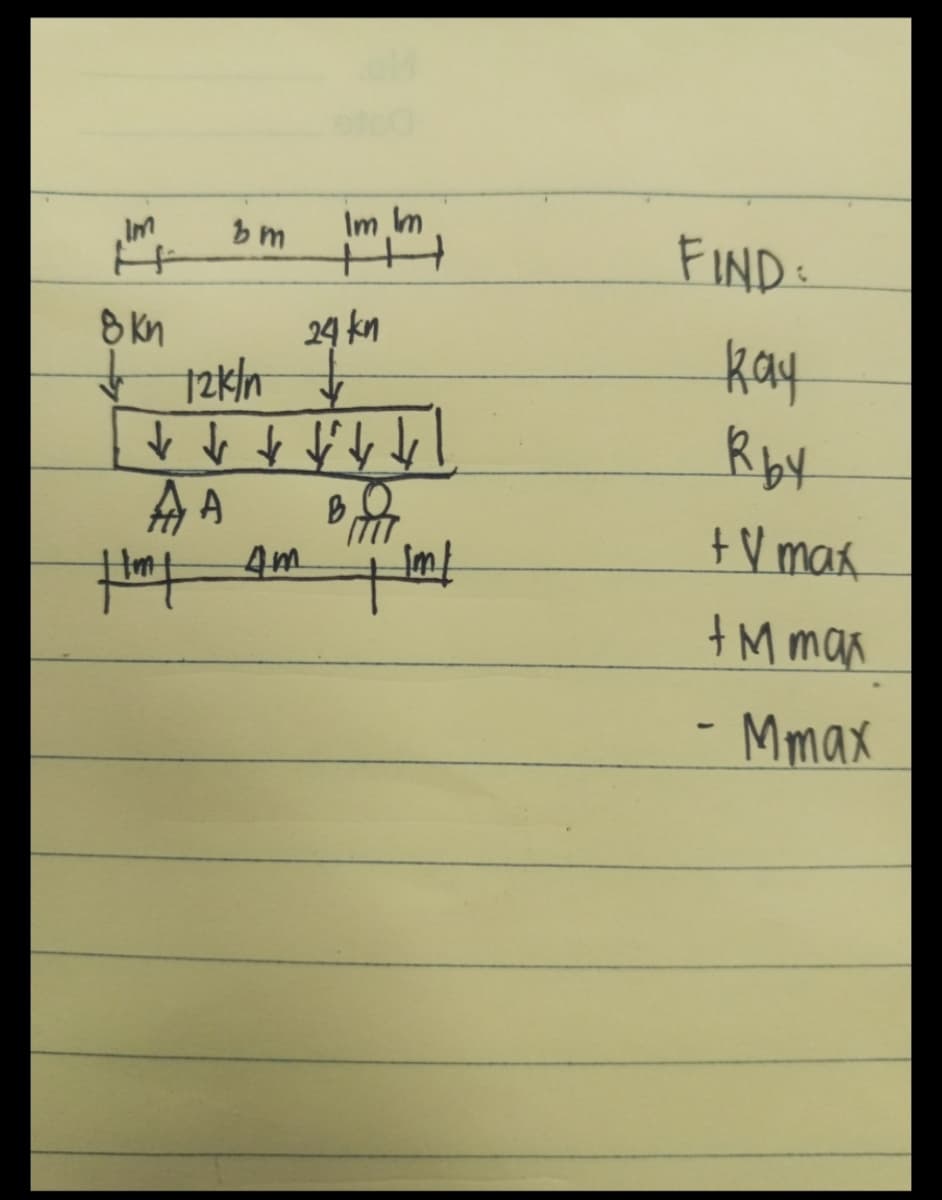 1m 3m 1m 1m
8 Kn 24 kn
12k/n
A B
1m 4m 1m
FIND:
Ray
Rby
+ V max
+ M max
- Mmax